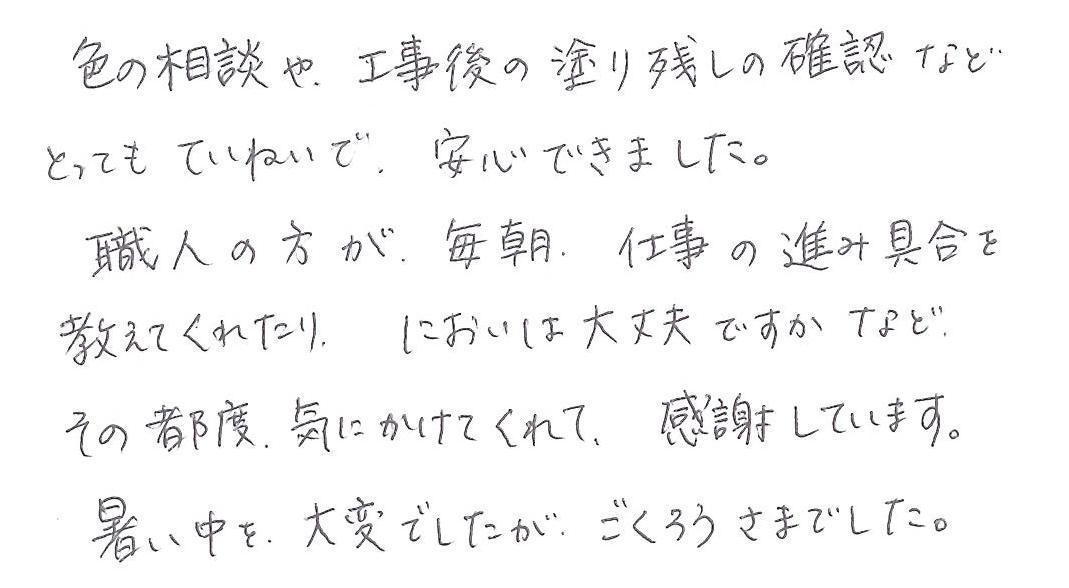 色の相談や、工事後の塗り残しの確認など
とってもていねいで、安心できました。
職人の方が、毎朝、仕事の進み具合を
教えてくれたり、においは大丈夫ですかなど、
その都度、気にかけてくれて、感謝しています。
暑い中を、大変でしたが、ごくろうさまでした。